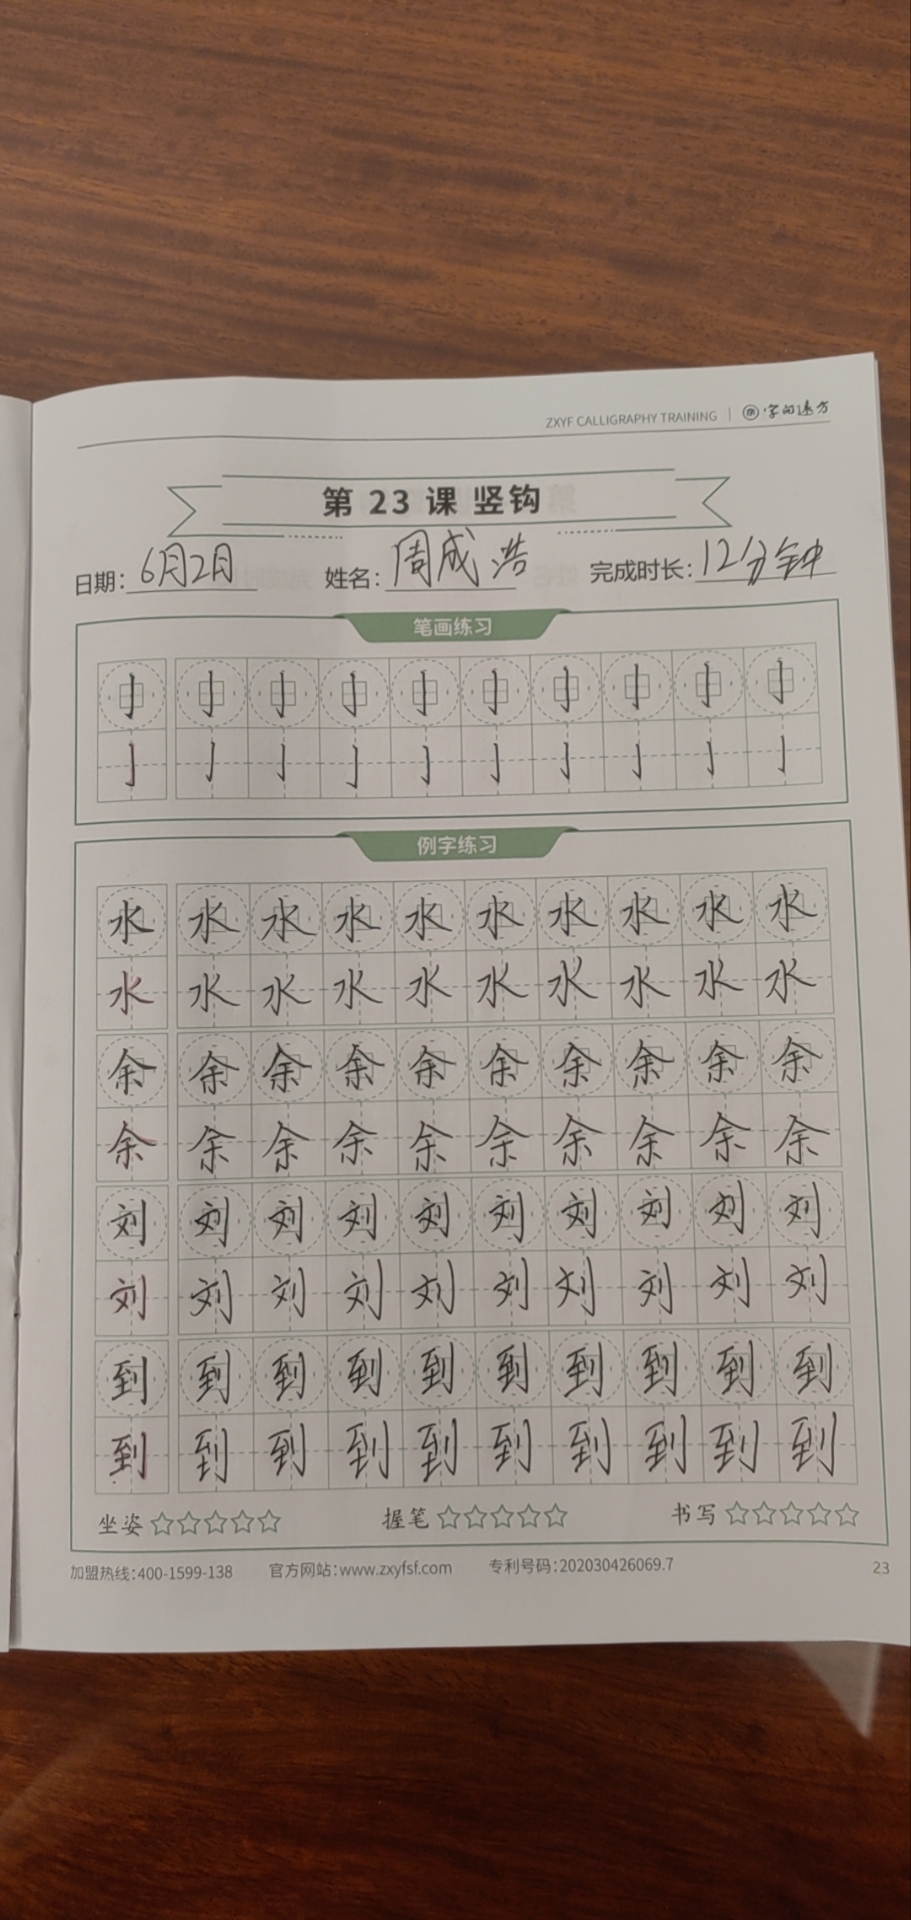 ZXYF CALLIGRAPHY TRAINING | 字的远方
第 23 课 竖钩
日期：6月2日 姓名：周成浩 完成时长：12分钟
笔画练习
亅 亅 亅 亅 亅 亅 亅 亅 亅 亅
亅 亅 亅 亅 亅 亅 亅 亅 亅 亅
例字练习
水 水 水 水 水 水 水 水 水 水
水 水 水 水 水 水 水 水 水 水
余 余 余 余 余 余 余 余 余 余
余 余 余 余 余 余 余 余 余 余
刘 刘 刘 刘 刘 刘 刘 刘 刘 刘
刘 刘 刘 刘 刘 刘 刘 刘 刘 刘
到 到 到 到 到 到 到 到 到 到
到 到 到 到 到 到 到 到 到 到
坐姿 ☆☆☆☆☆ 握笔 ☆☆☆☆☆ 书写 ☆☆☆☆☆
加盟热线：400-1599-138 官方网站：www.zxyfsf.com 专利号码：202030426069.7 23